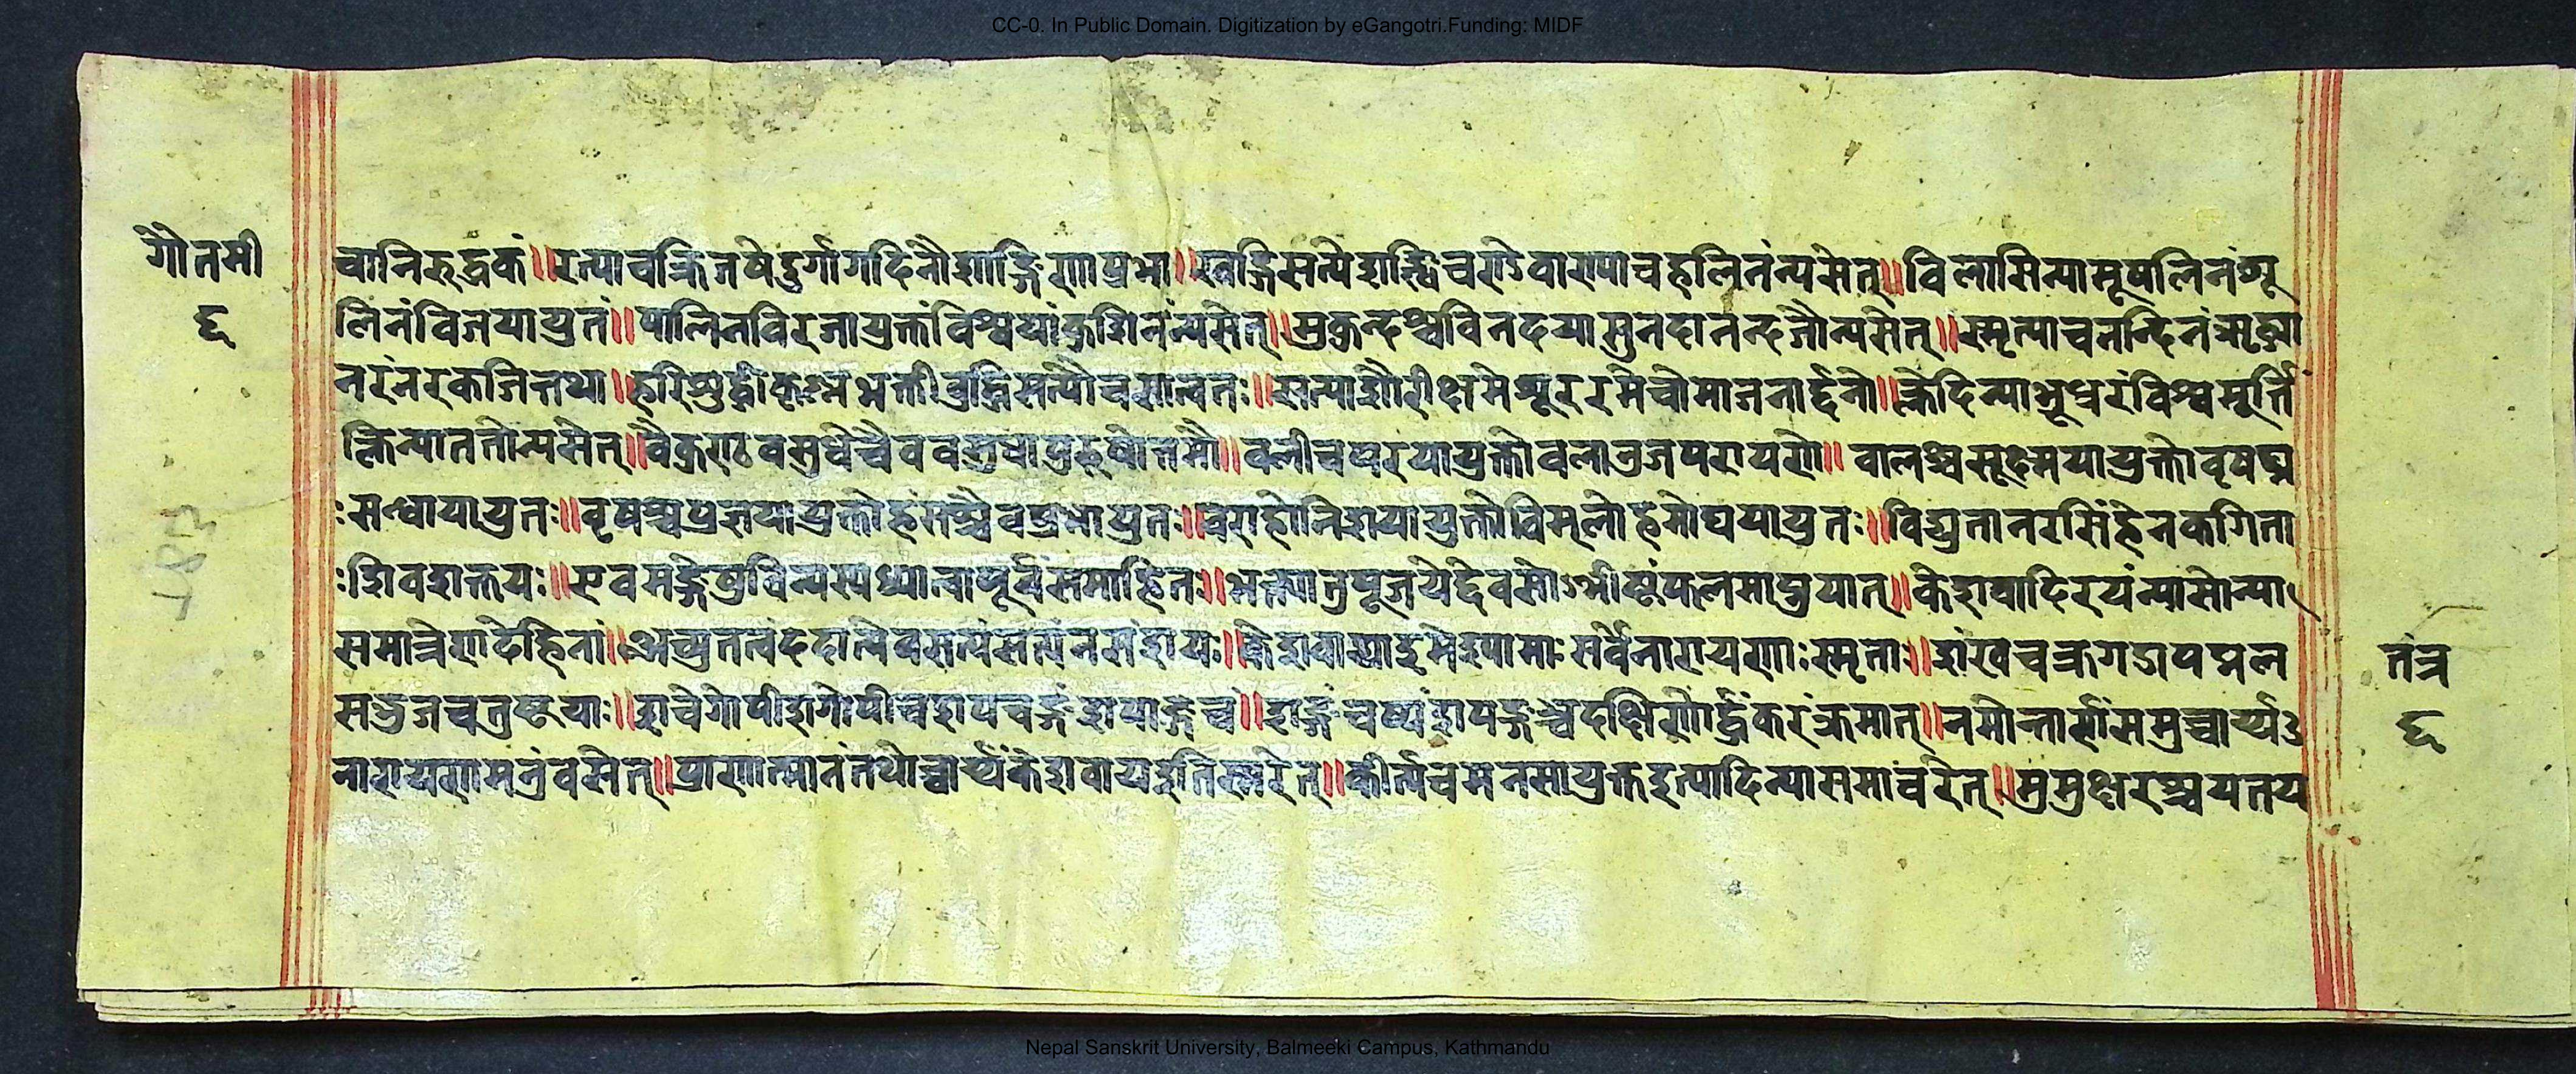 CC-0. In Public Domain. Digitization by eGangotri.Funding: MIDF
गौतमी
६
वानिरुद्धकं॥रत्याचक्रिजषेदुर्गागदिनौशार्ङ्गिणाप्रभा॥खड्गिसत्येशङ्खिचण्डेवाराण्याचहलिनंन्यसेत्॥विलासिन्यामूषलिनंशू
लिनंविजयायुतं॥पालिनविरजायुक्तंविश्वयांकुशिनंन्यसेत्॥मुकुन्दश्चविनदयासुनदानन्दजौन्यसेत्॥स्मृत्याचनन्दिनंऋद्ध्या
नरंनरकजित्तथा॥हरिशुद्धीकृष्णभक्तीबुद्धिसत्यौचसात्वतः॥सत्याशौरीक्षमेशूररमेचोमाजनार्द्दनो॥क्लेदिन्याभूधरंविश्वमूर्त्ति
क्लिन्याततोन्यसेत्॥वैकुण्ठवसुधेचैववसुधापुरुषोत्तमौ॥वलीचपरयायुक्तोवलानुजपरायणे॥वालश्चसूक्ष्मयायुक्तोवृषघ्न
ःसन्ध्यायायुतः॥वृषश्चप्रज्ञयायुक्तोहंसश्चैवप्रभायुतः॥वराहोनिशयायुक्तोविमलोहमोघयायुतः॥विद्युतानरसिंहेनकगिता
ःशिवशक्तयः॥एवमङ्गेषुविन्यस्यध्यात्वापूर्वंसमाहितः॥भक्त्यातुपूजयेद्देवसोऽभीष्टंफलमाप्नुयात्॥केशवादिरयंन्यासोन्या
समात्रेणदेहिनां॥अच्युतत्वंददात्येवसत्यंसत्यंनसंशयः॥केशवाद्याइमेश्यामाःसर्वेनारायणाःस्मृताः॥शंखचक्रगदापद्मल
सद्भुजचतुष्टयाः॥
नारायणमन्त्रंवसेत्॥प्राणात्मानंतथोच्चार्य्यकेशवायइतिस्मरेत्॥कीर्त्यचमनसायुक्तइत्यादिन्यासमाचरेत्॥मुमुक्षरश्चयतय
तंत्र
६
Nepal Sanskrit University, Balmeeki Campus, Kathmandu